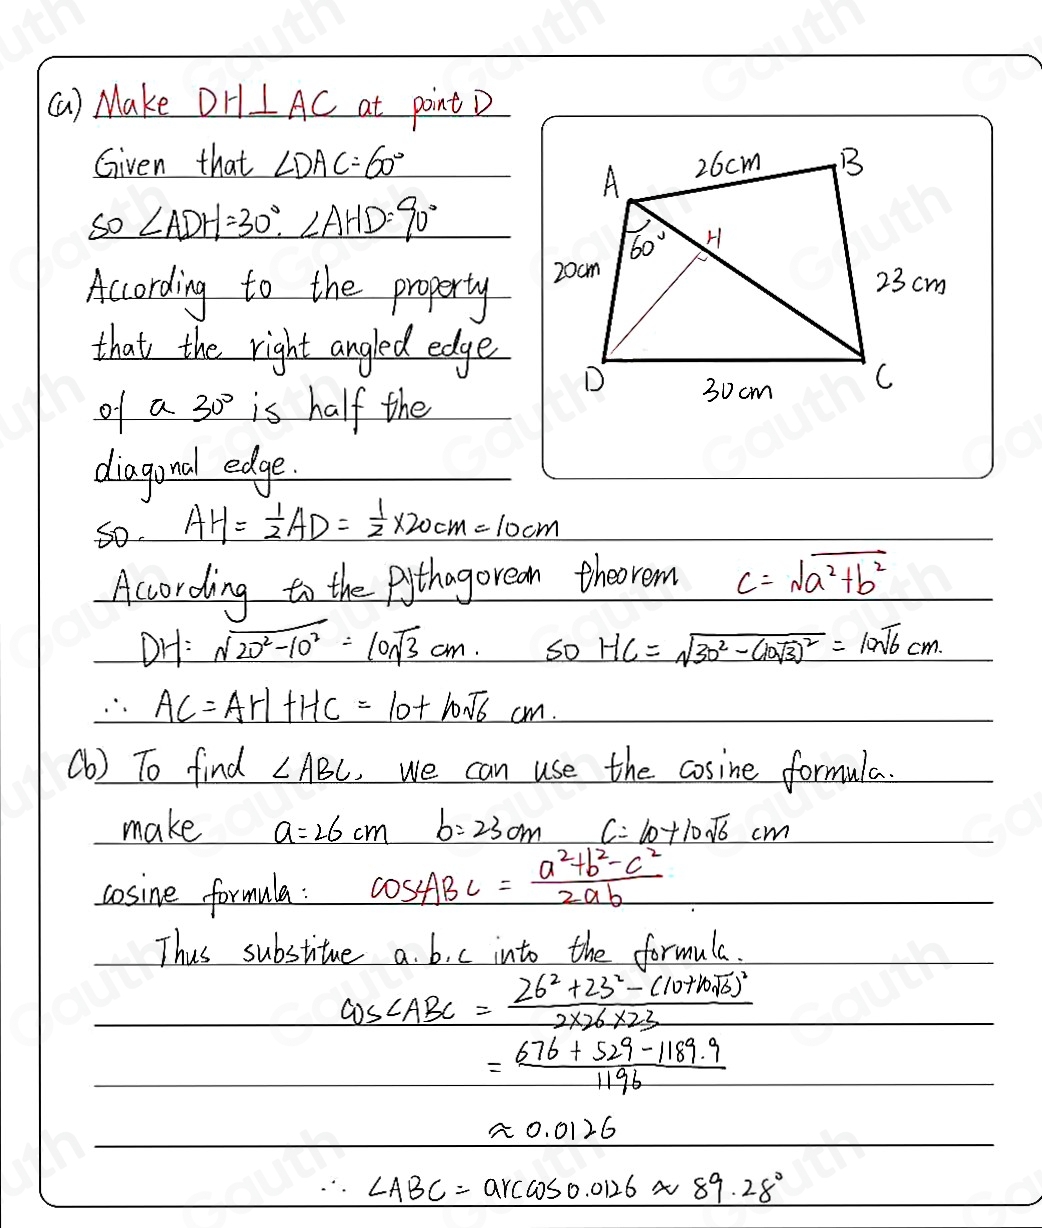 (a) Make DH⊥AC at point D
Given that ∠DAC=60°
so ∠ADH=30°. ∠AHD=90°
According to the property
that the right angled edge
of a 30° is half the
diagonal edge.
so. AH = 1/2 AD = 1/2 ×20cm = 10cm
According to the Pythagorean theorem c = √(a²+b²)
DH = √(20²-10²) = 10√3 cm. so HC = √(30²-(10√3)²) = 10√6 cm.
∴ AC = AH + HC = 10 + 10√6 cm.
(b) To find ∠ABC, we can use the cosine formula.
make a=26 cm b=23 cm C=10+10√6 cm
cosine formula: cos∠ABC = (a²+b²-c²)/(2ab)
Thus substitue a.b.c into the formula.
cos∠ABC = (26²+23²-(10+10√6)²)/(2×26×23)
= (676 + 529 - 1189.9)/1196
≈ 0.0126
∴ ∠ABC = arccos0.0126 ≈ 89.28°
A
26cm
B
60°
H
20cm
23 cm
D
30cm
C
Gauth